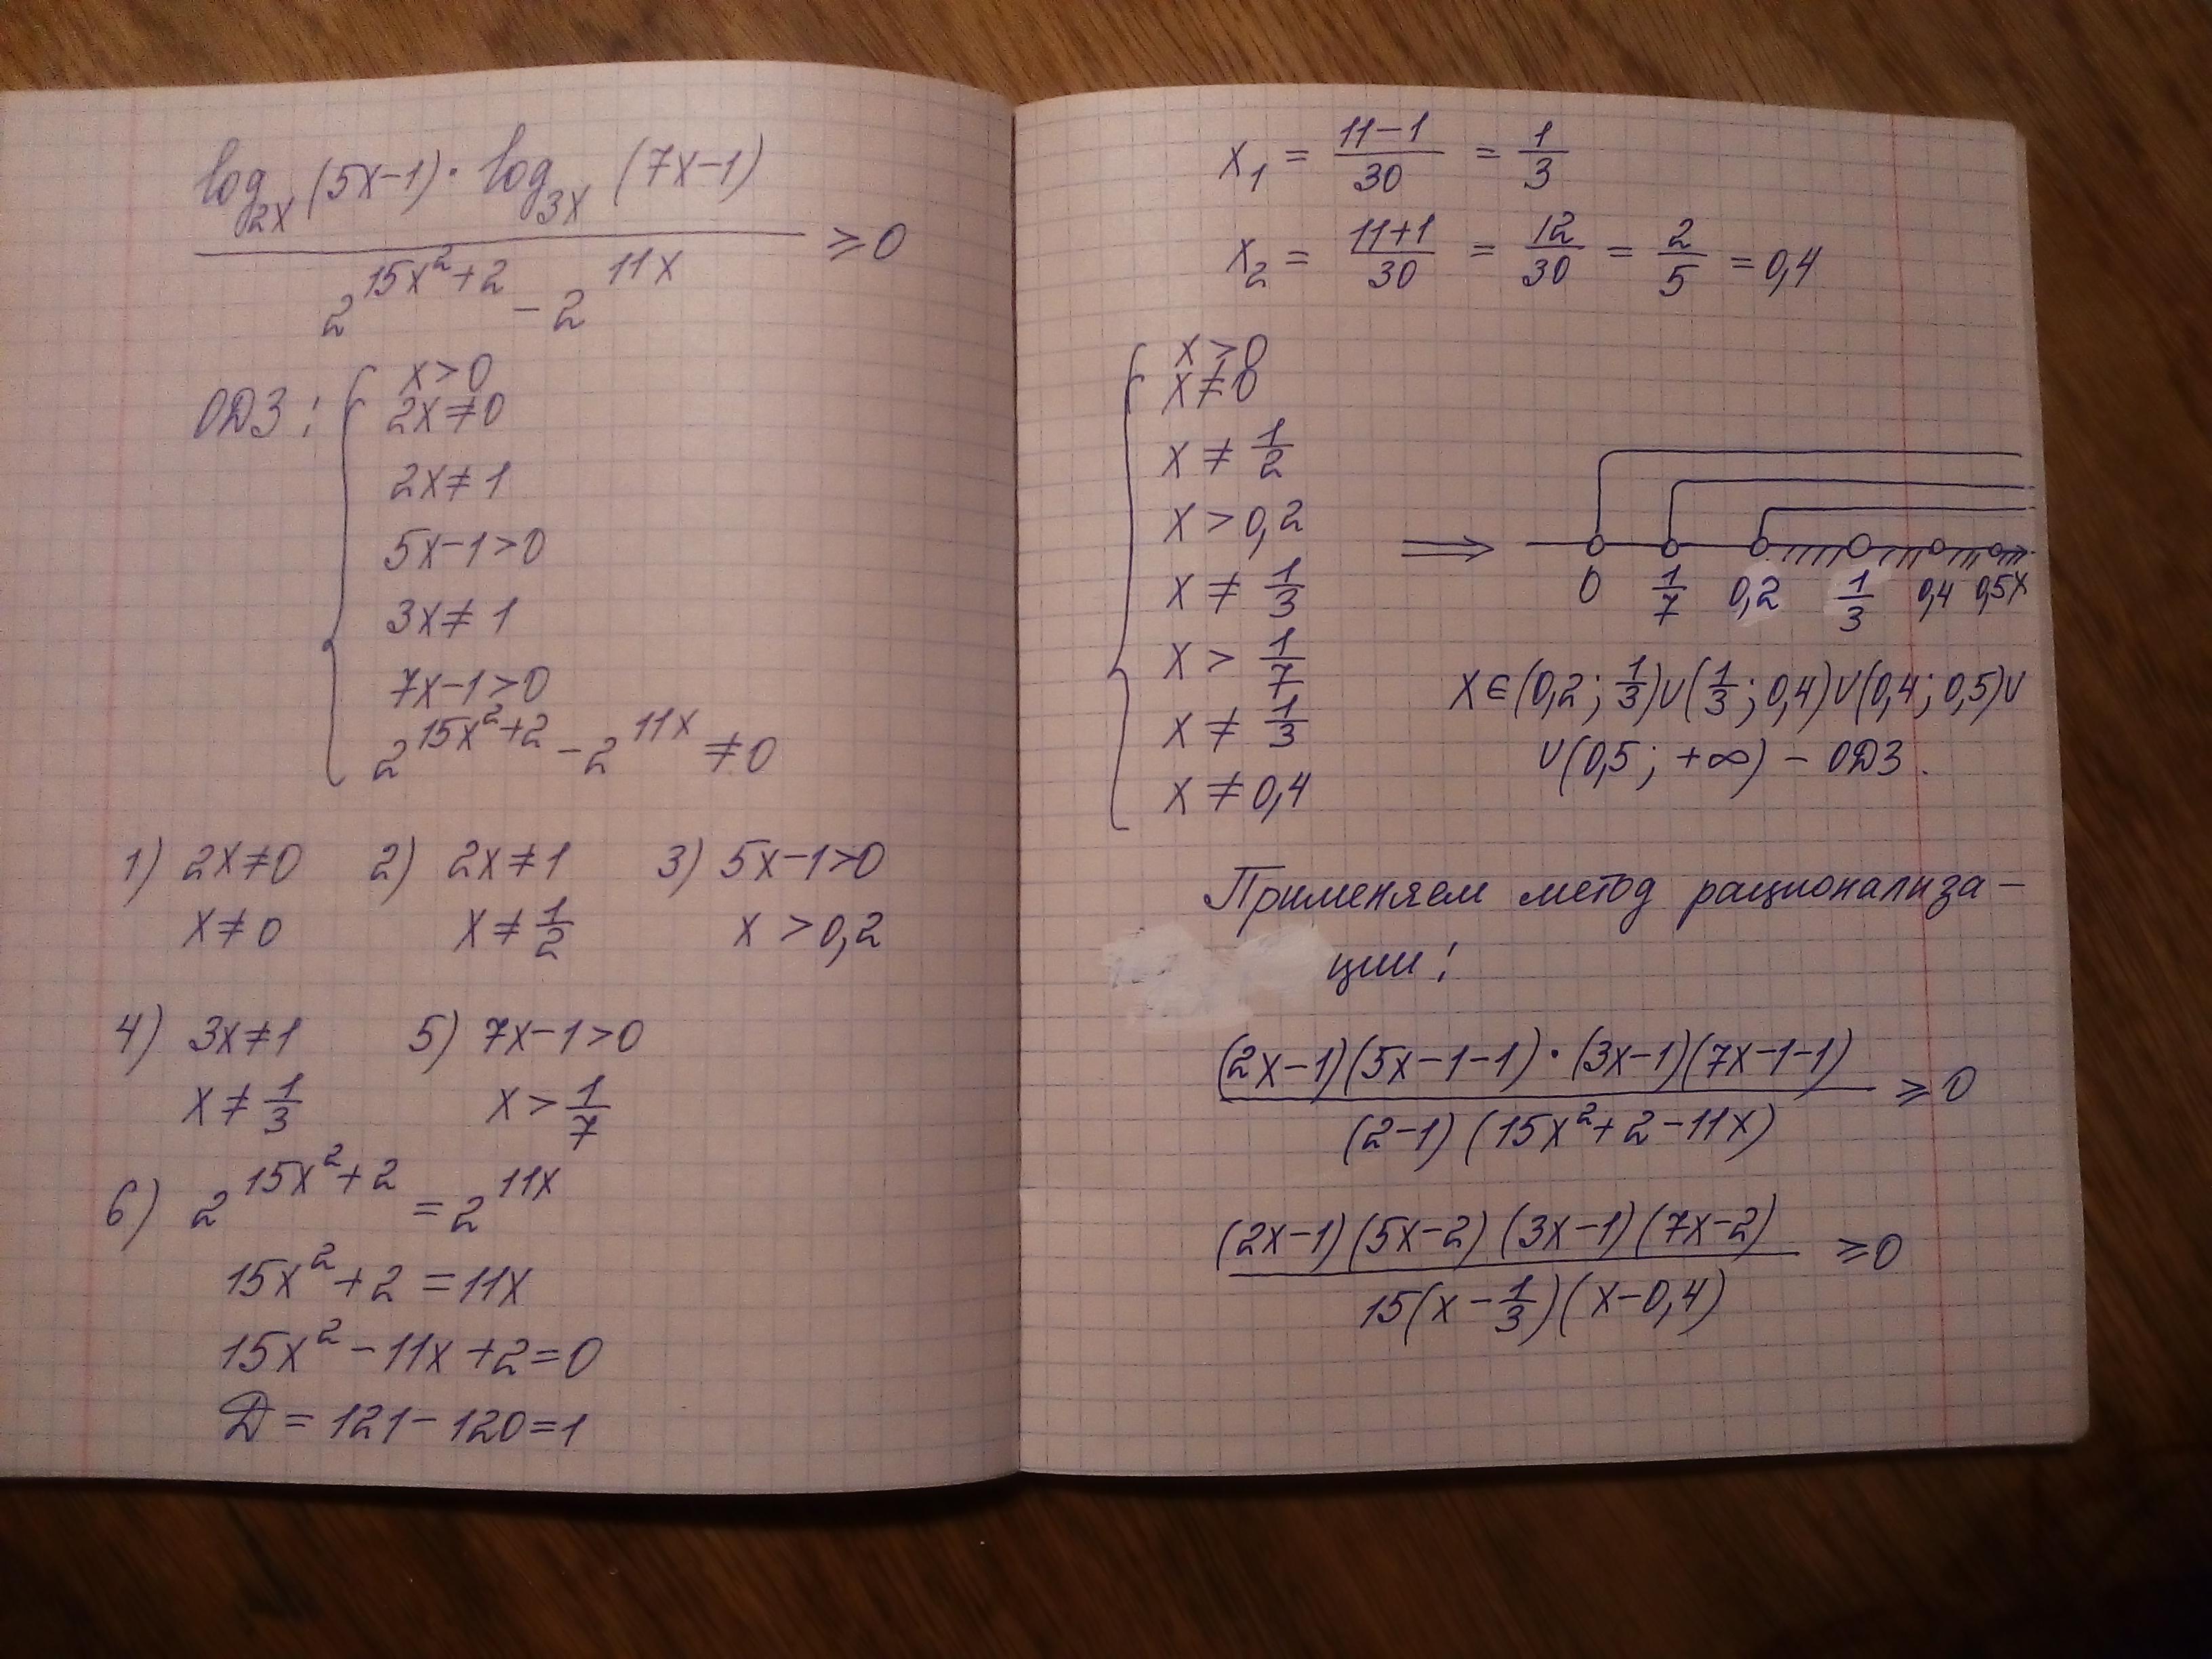 log₂ₓ(5x-1)·log₃ₓ(7x-1) / (2^(15x²+2) - 2^(11x)) ≥ 0
ОДЗ: { x>0
2x≠0
2x≠1
5x-1>0
3x≠1
7x-1>0
2^(15x²+2) - 2^(11x) ≠ 0
1) 2x≠0 2) 2x≠1 3) 5x-1>0
x≠0 x≠1/2 x>0,2
4) 3x≠1 5) 7x-1>0
x≠1/3 x>1/7
6) 2^(15x²+2) = 2^(11x)
15x²+2=11x
15x²-11x+2=0
Д=121-120=1
x₁ = (11-1)/30 = 1/3
x₂ = (11+1)/30 = 12/30 = 2/5 = 0,4
{ x>0
x≠0
x≠1/2
x>0,2
x≠1/3
x>1/7
x≠1/3
x≠0,4
⟹ 0 1/7 0,2 1/3 0,4 0,5 x
x∈(0,2; 1/3)∪(1/3; 0,4)∪(0,4; 0,5)∪
∪(0,5; +∞) - ОДЗ.
Применяем метод рационализа-
ции:
(2x-1)(5x-1-1)·(3x-1)(7x-1-1) / ((2-1)(15x²+2-11x)) ≥ 0
(2x-1)(5x-2)(3x-1)(7x-2) / (15(x-1/3)(x-0,4)) ≥ 0